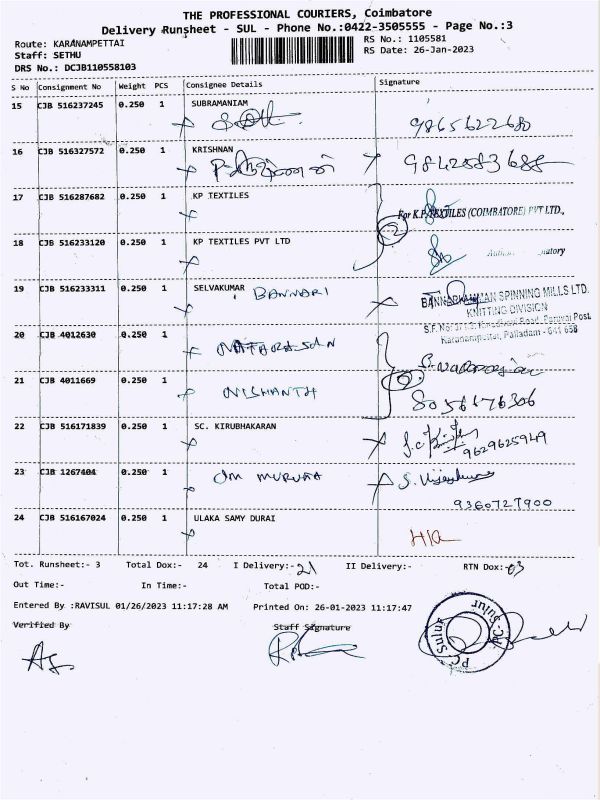 THE PROFESSIONAL COURIERS, Coimbatore
Delivery Runsheet - SUL - Phone No.:0422-3505555 - Page No.:3
Route: KARANAMPETTAI
Staff: SETHU
DRS No.: DCJB110558103
RS No.: 1105581
RS Date: 26-Jan-2023
S No Consignment No Weight PCS Consignee Details Signature
15 CJB 516237245 0.250 1 SUBRAMANIAM
9865622680
16 CJB 516327572 0.250 1 KRISHNAN
9842883688
17 CJB 516287682 0.250 1 KP TEXTILES
For K.P. TEXTILES (COIMBATORE) PVT LTD.,
18 CJB 516233120 0.250 1 KP TEXTILES PVT LTD
19 CJB 516233311 0.250 1 SELVAKUMAR, BANNARI
SPINNING MILLS LTD.
KNITTING DIVISION
20 CJB 4012630 0.250 1 NATARASAN
Karanampettai, Palladam - 641 658
21 CJB 4011669 0.250 1 NISHANTH
8056676306
22 CJB 516171839 0.250 1 SC. KIRUBHAKARAN
9629625949
23 CJB 1267404 0.250 1 OM MURUGA
9360727900
24 CJB 516167024 0.250 1 ULAKA SAMY DURAI
Tot. Runsheet:- 3 Total Dox:- 24 I Delivery:- 21 II Delivery:- RTN Dox:- 03
Out Time:- In Time:- Total POD:-
Entered By :RAVISUL 01/26/2023 11:17:28 AM Printed On: 26-01-2023 11:17:47
Verified By Staff Signature
PC-Sulur
PC-Sulur